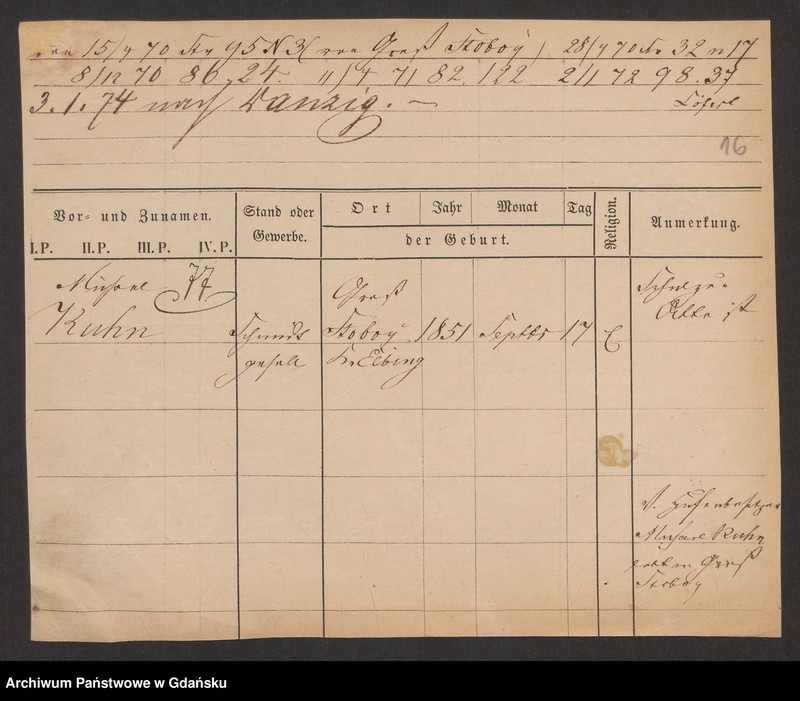 von 15/4 70 Str 95 N 3 von Groß Stoboy 28/4 70 Str 32 n 17
8/12 70 86. 24. 11/4 71 82. 122 2/1 72 98. 37
3. 1. 74 nach Danzig. —
16
Vor= und Zunamen.
I.P. II.P. III.P. IV.P.
Stand oder
Gewerbe.
Ort Jahr Monat Tag
der Geburt.
Religion.
Anmerkung.
Michael 77
Kuhn
Schmidt
gesell
Groß
Stoboy 1851 Septbr 17 E
Kr Elbing
V. Hufenbesitzer
Michael Kuhn
lebt in Groß
Stoboy
Archiwum Państwowe w Gdańsku